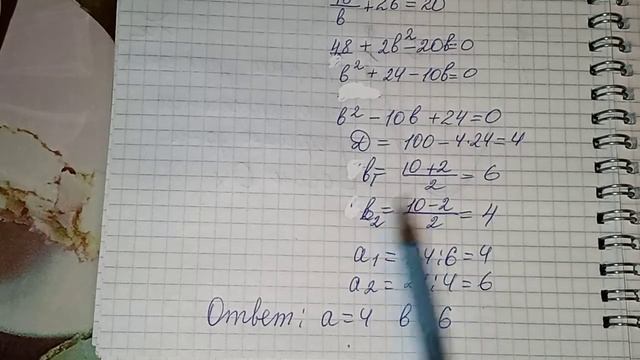 48/в + 2в = 20
48 + 2в² - 20в = 0
в² + 24 - 10в = 0
в² - 10в + 24 = 0
D = 100 - 4·24 = 4
в₁ = (10+2)/2 = 6
в₂ = (10-2)/2 = 4
a₁ = 4:6 = 4
a₂ = :4 = 6
Ответ: a = 4 в 6